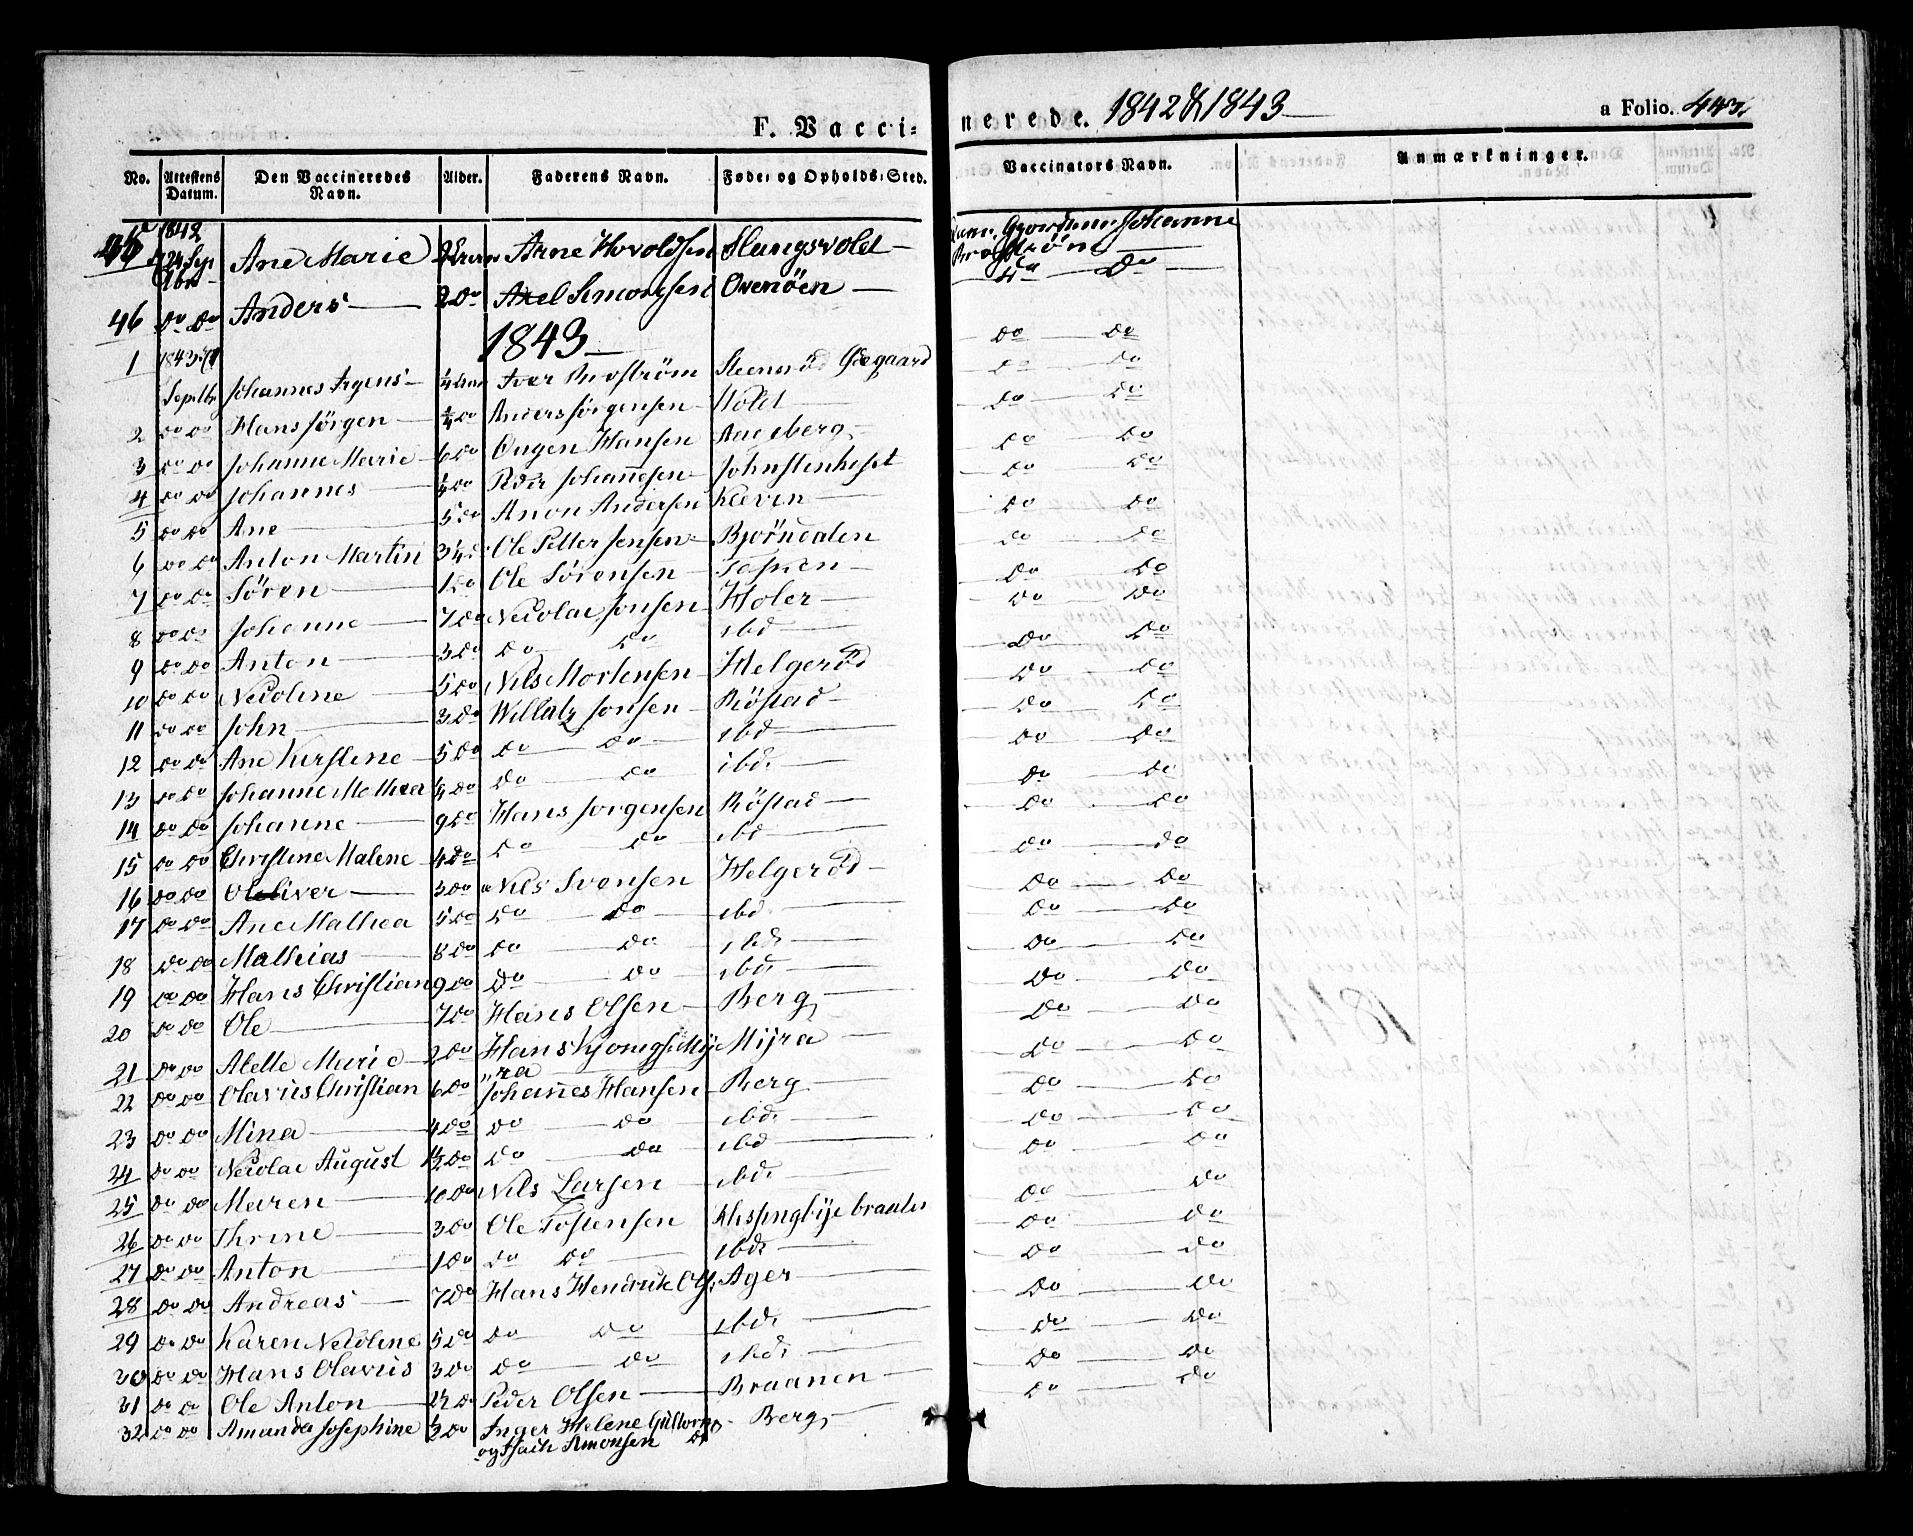 F. Vacci-
nerede. 1842 & 1843
a Folio. 443.
No. Attestens Datum. Den Vaccineredes Navn. Alder. Faderens Navn. Føde- og Opholds-Sted. Vaccinators Navn. Anmærkninger.
1842
45 24 Sep Ane Marie Arne Hovoldsen Slangsvold
46 do do Anders 2 do Axel Simonsen Overöen do
1843
1 1843 Septbr Johannes Irgens Iver Steenröd Ødegaard do do
2 do do Hans Jörgen 1/4 do Anders Jörgensen Holet do do
3 do do Johanne Marie 6 do Hansen do do
4 do do Johannes 1/4 do Peder Johannesen do do
5 do do Ane 5 do Anon Andersen Kleven do do
6 do do Anton Martin 3 1/4 do Ole Petter Jensen Bjørndalen do do
7 do do Sören 1 do Ole Sörensen do do
8 do do Johanne 7 do Nicolai Jonsen Holer do do
9 do do Anton 3 do do do ibd do do
10 do do Nicoline 5 do Nils Mortensen Helgeröd do do
11 do do John 3 do Willatz Jonsen Röstad do do
12 do do Ane Kirstine 5 do do do ibd do do
13 do do Johanne Mathea 1/4 do do do ibd. do do
14 do do Johanne 9 do Hans Jorgensen Röstad do do
15 do do Christine Malene 4 do do do ibd do do
16 do do Oliver 3 do Nils Svensen Helgeröd do do
17 do do Ane Mathea 5 do do do ibd. do do
18 do do Mathias 8 do do do ibd. do do
19 do do Hans Christian 9 do do do ibd. do do
20 do do Ole 7 do Hans Olsen Berg do do
21 do do Alette Marie 2 do Hans My Mijra do do
"ra
22 do do Olavus Christian 6 do Johannes Hansen Berg do do
23 do do Mina 4 do do do ibd. do do
24 do do Nicolai August 1 1/2 do do do ibd do do
25 do do Maren 10 do Nils Larsen ibd. do do
26 do do Thrine 3 do Ole Tostensen do do
27 do do Anton 1 do do do ibd. do do
28 do do Andreas 7 do Hans Hendrik Ols. Ager do do
29 do do Karen Nicoline 5 do do do ibd. do do
30 do do Hans Olavus 3 do do do ibd. do do
31 do do Ole Anton 2 1/2 do Peder Olsen Braanen do do
32 do do Amanda Josephine 1/2 do Inger Helene Berg,
og Isach Simonsen